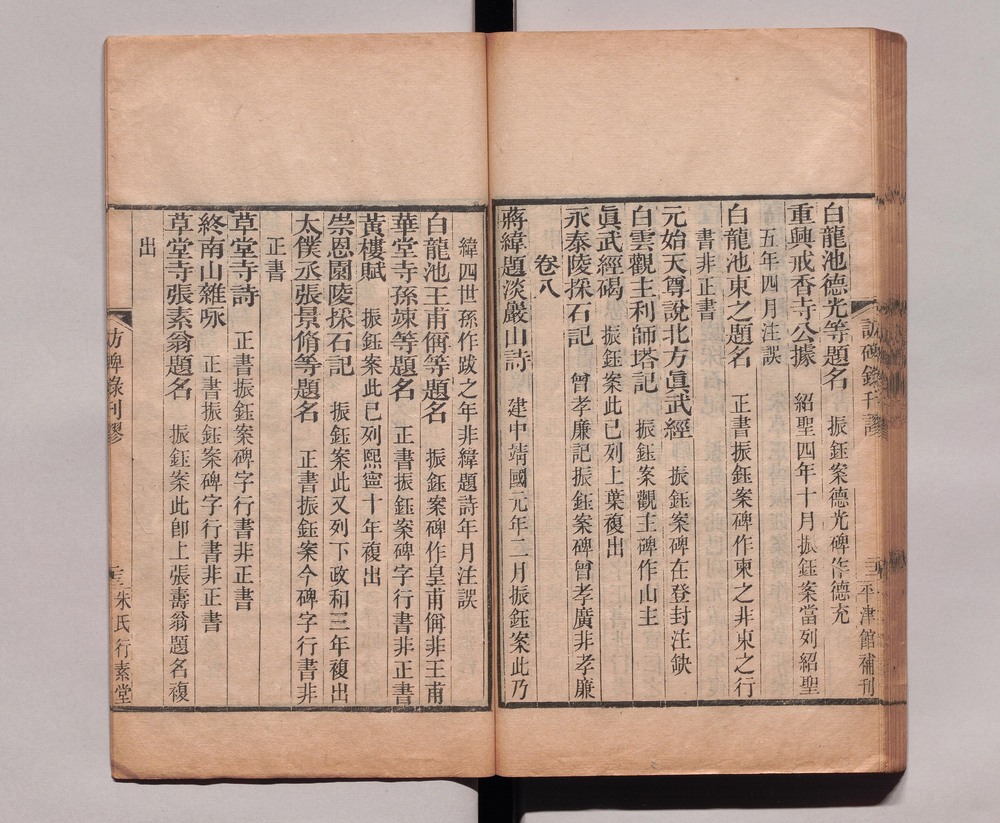 訪碑錄刊謬
三
平津館補刊
白龍池德光等題名 振鈺案德光碑作德充
重興戒香寺公據 紹聖四年十月振鈺案當列紹聖
五年四月注誤
白龍池東之題名 正書振鈺案碑作東之非東之行
書非正書
元始天尊說北方眞武經 振鈺案碑在登封注缺
白雲觀主利師塔記 振鈺案觀主碑作山主
眞武經碣 振鈺案此已列上葉複出
永泰陵採石記 曾孝廉記振鈺案碑曾孝廣非孝廉
卷八
蔣緯題淡巖山詩 建中靖國元年三月振鈺案此乃
緯四世孫作跋之年非緯題詩年月注誤
白龍池王甫偁等題名 振鈺案碑作皇甫偁非王甫
華堂寺孫竦等題名 正書振鈺案碑字行書非正書
黃樓賦 振鈺案此已列熙寧十年複出
崇恩園陵採石記 振鈺案此又列下政和三年複出
太僕丞張景脩等題名 正書振鈺案今碑字行書非
正書
草堂寺詩 正書振鈺案碑字行書非正書
終南山雜咏 正書振鈺案碑字行書非正書
草堂寺張素翁題名 振鈺案此卽上張壽翁題名複
出
訪碑錄刊謬
三
朱氏行素堂